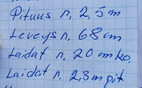 Pituus n, 2,5 m
Leveys n, 68 cm
Laidat n, 20 mm ke.
Laidat n, 2,3 m pit